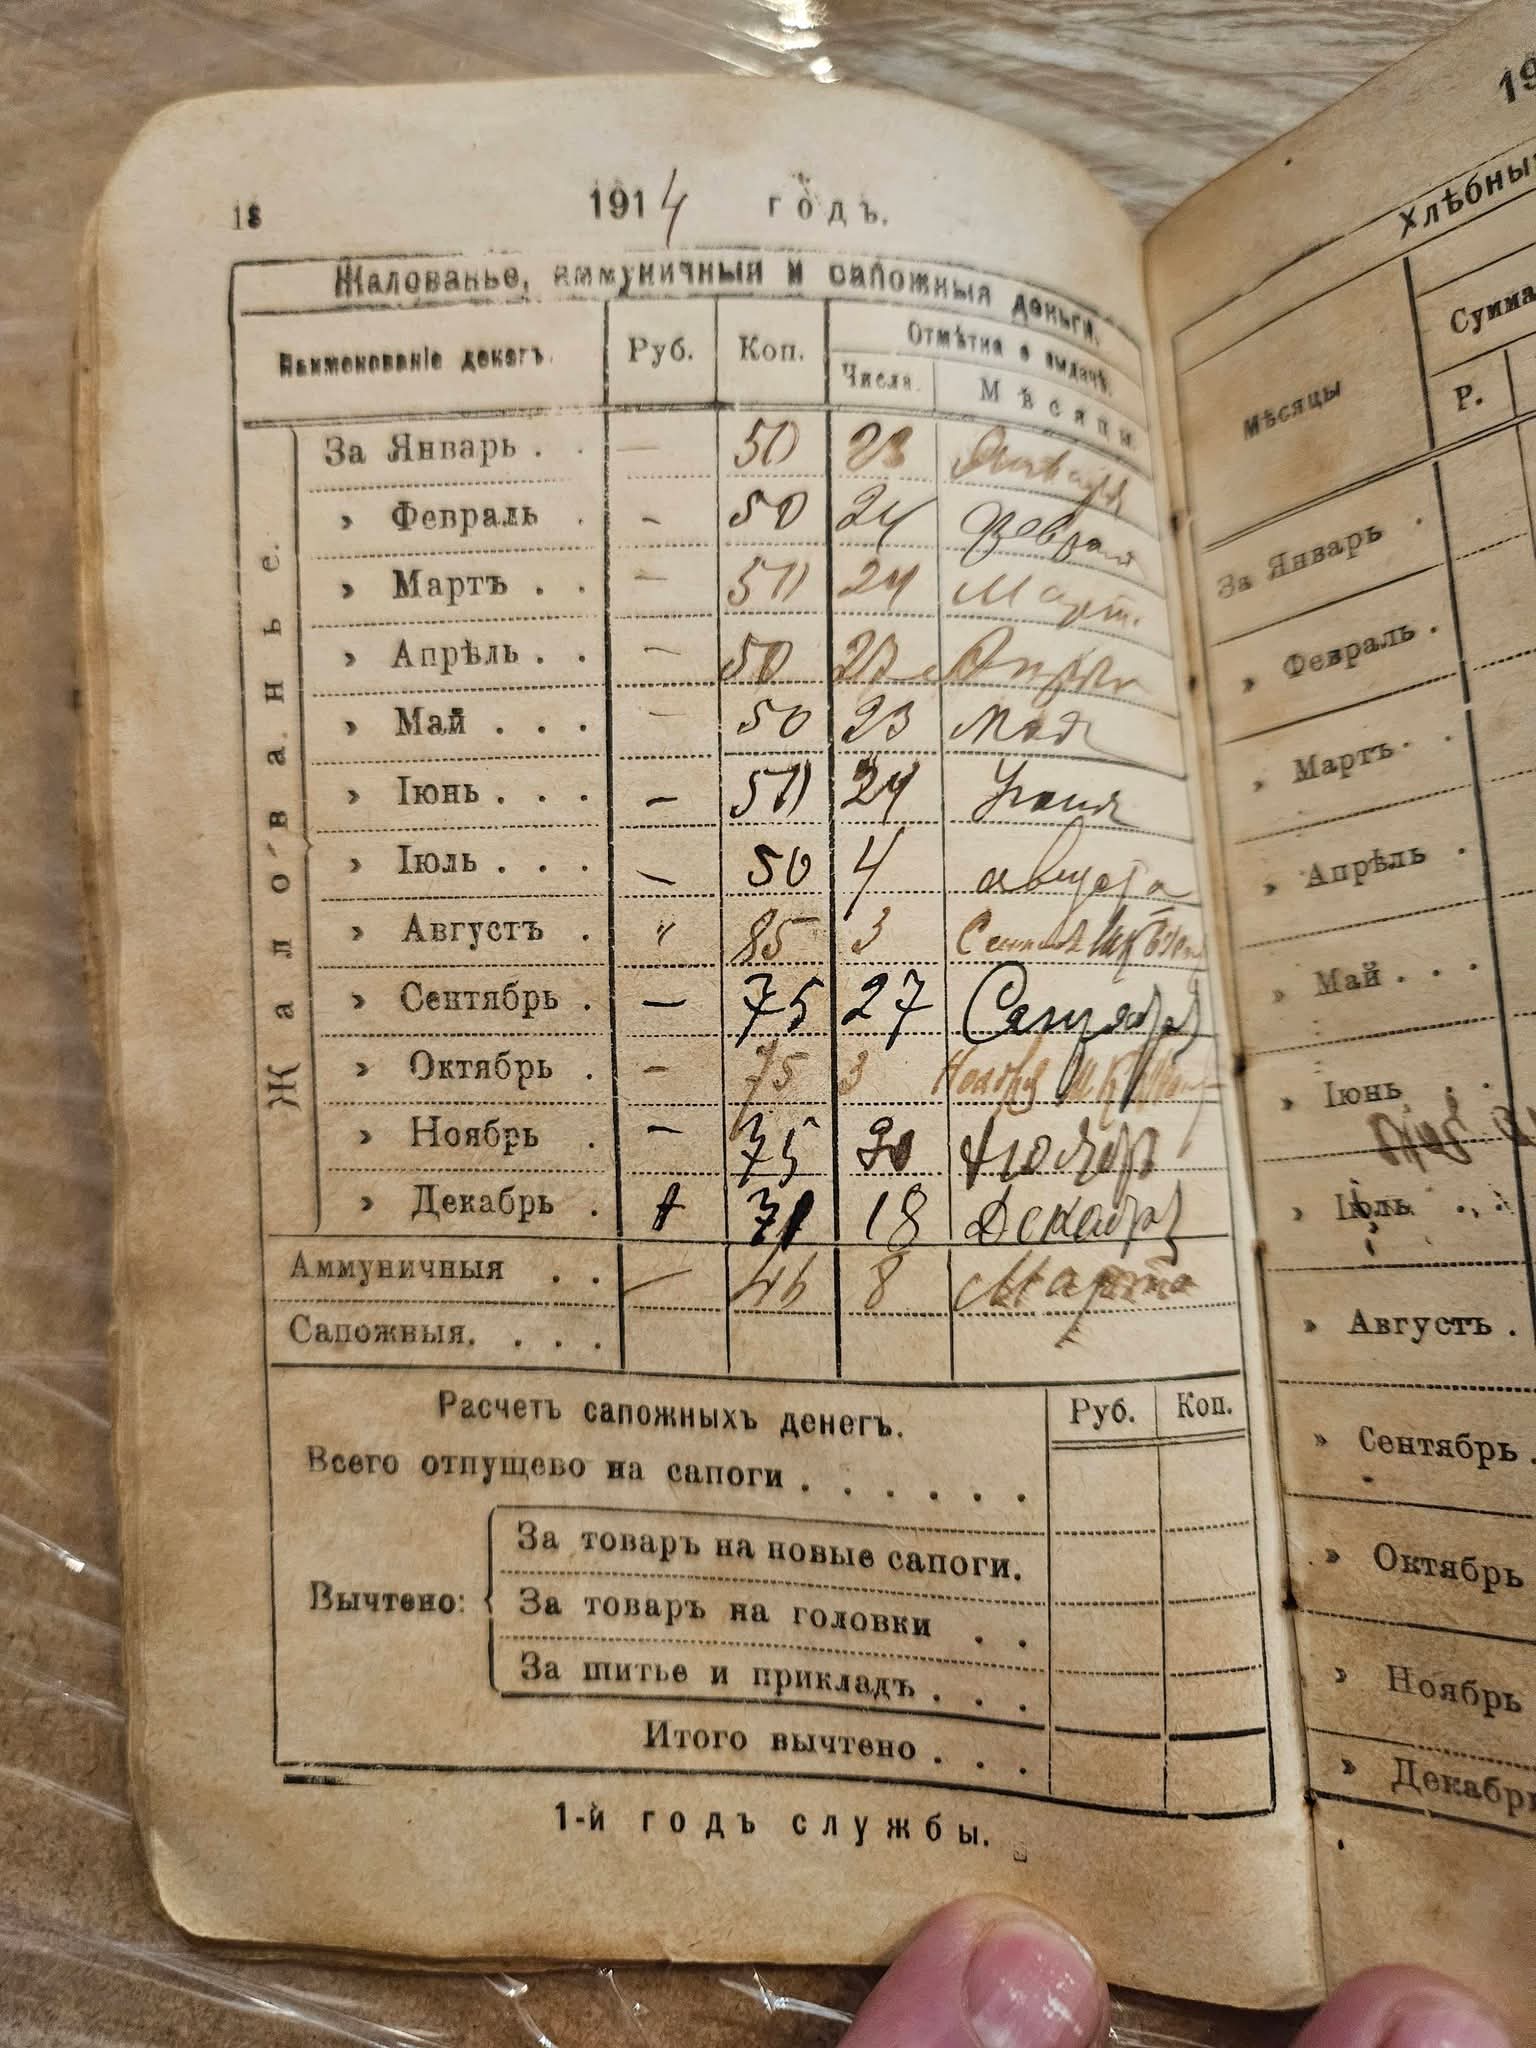 18
1914 годъ.
Жалованье, аммуничныя и сапожныя деньги.
Наименованіе денегъ. Руб. Коп. Отмѣтка о выдачѣ.
Числа. Мѣсяцы
Жалованье.
За Январь . . — 50 23 Января
» Февраль . - 50 24 Февраля
» Мартъ . . - 50 24 Март.
» Апрѣль . . - 50 23 Апрѣля
» Май . . . - 50 23 Мая
» Іюнь . . . - 50 24 Іюня
» Іюль . . . - 50 4 августа
» Августъ . " 85 3
» Сентябрь . — 75 27 Сентября
» Октябрь . - 75 3 Ноября
» Ноябрь . - 75 30 Ноября
» Декабрь . 18 Декабря
Аммуничныя . . — 46 8 Марта
Сапожныя. . . .
Расчетъ сапожныхъ денегъ. Руб. Коп.
Всего отпущево на сапоги . . . . . .
Вычтено:
За товаръ на новые сапоги.
За товаръ на головки . .
За шитье и прикладъ . . .
Итого вычтено . . .
1-й годъ службы.
19
Хлѣбны
Мѣсяцы Сумма
Р.
За Январь .
» Февраль .
» Мартъ . .
» Апрѣль .
» Май . . .
» Іюнь . .
» Іюль . . .
» Августъ .
» Сентябрь .
» Октябрь
» Ноябрь
» Декабрь